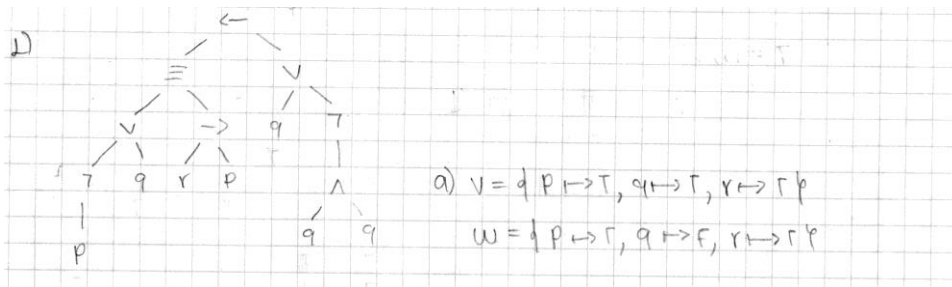 1)
←
≡ ∨
∨ → q ¬
¬ q r p ∧
p q q
a) v = { p ↦ T, q ↦ T, r ↦ T }
w = { p ↦ T, q ↦ F, r ↦ T }